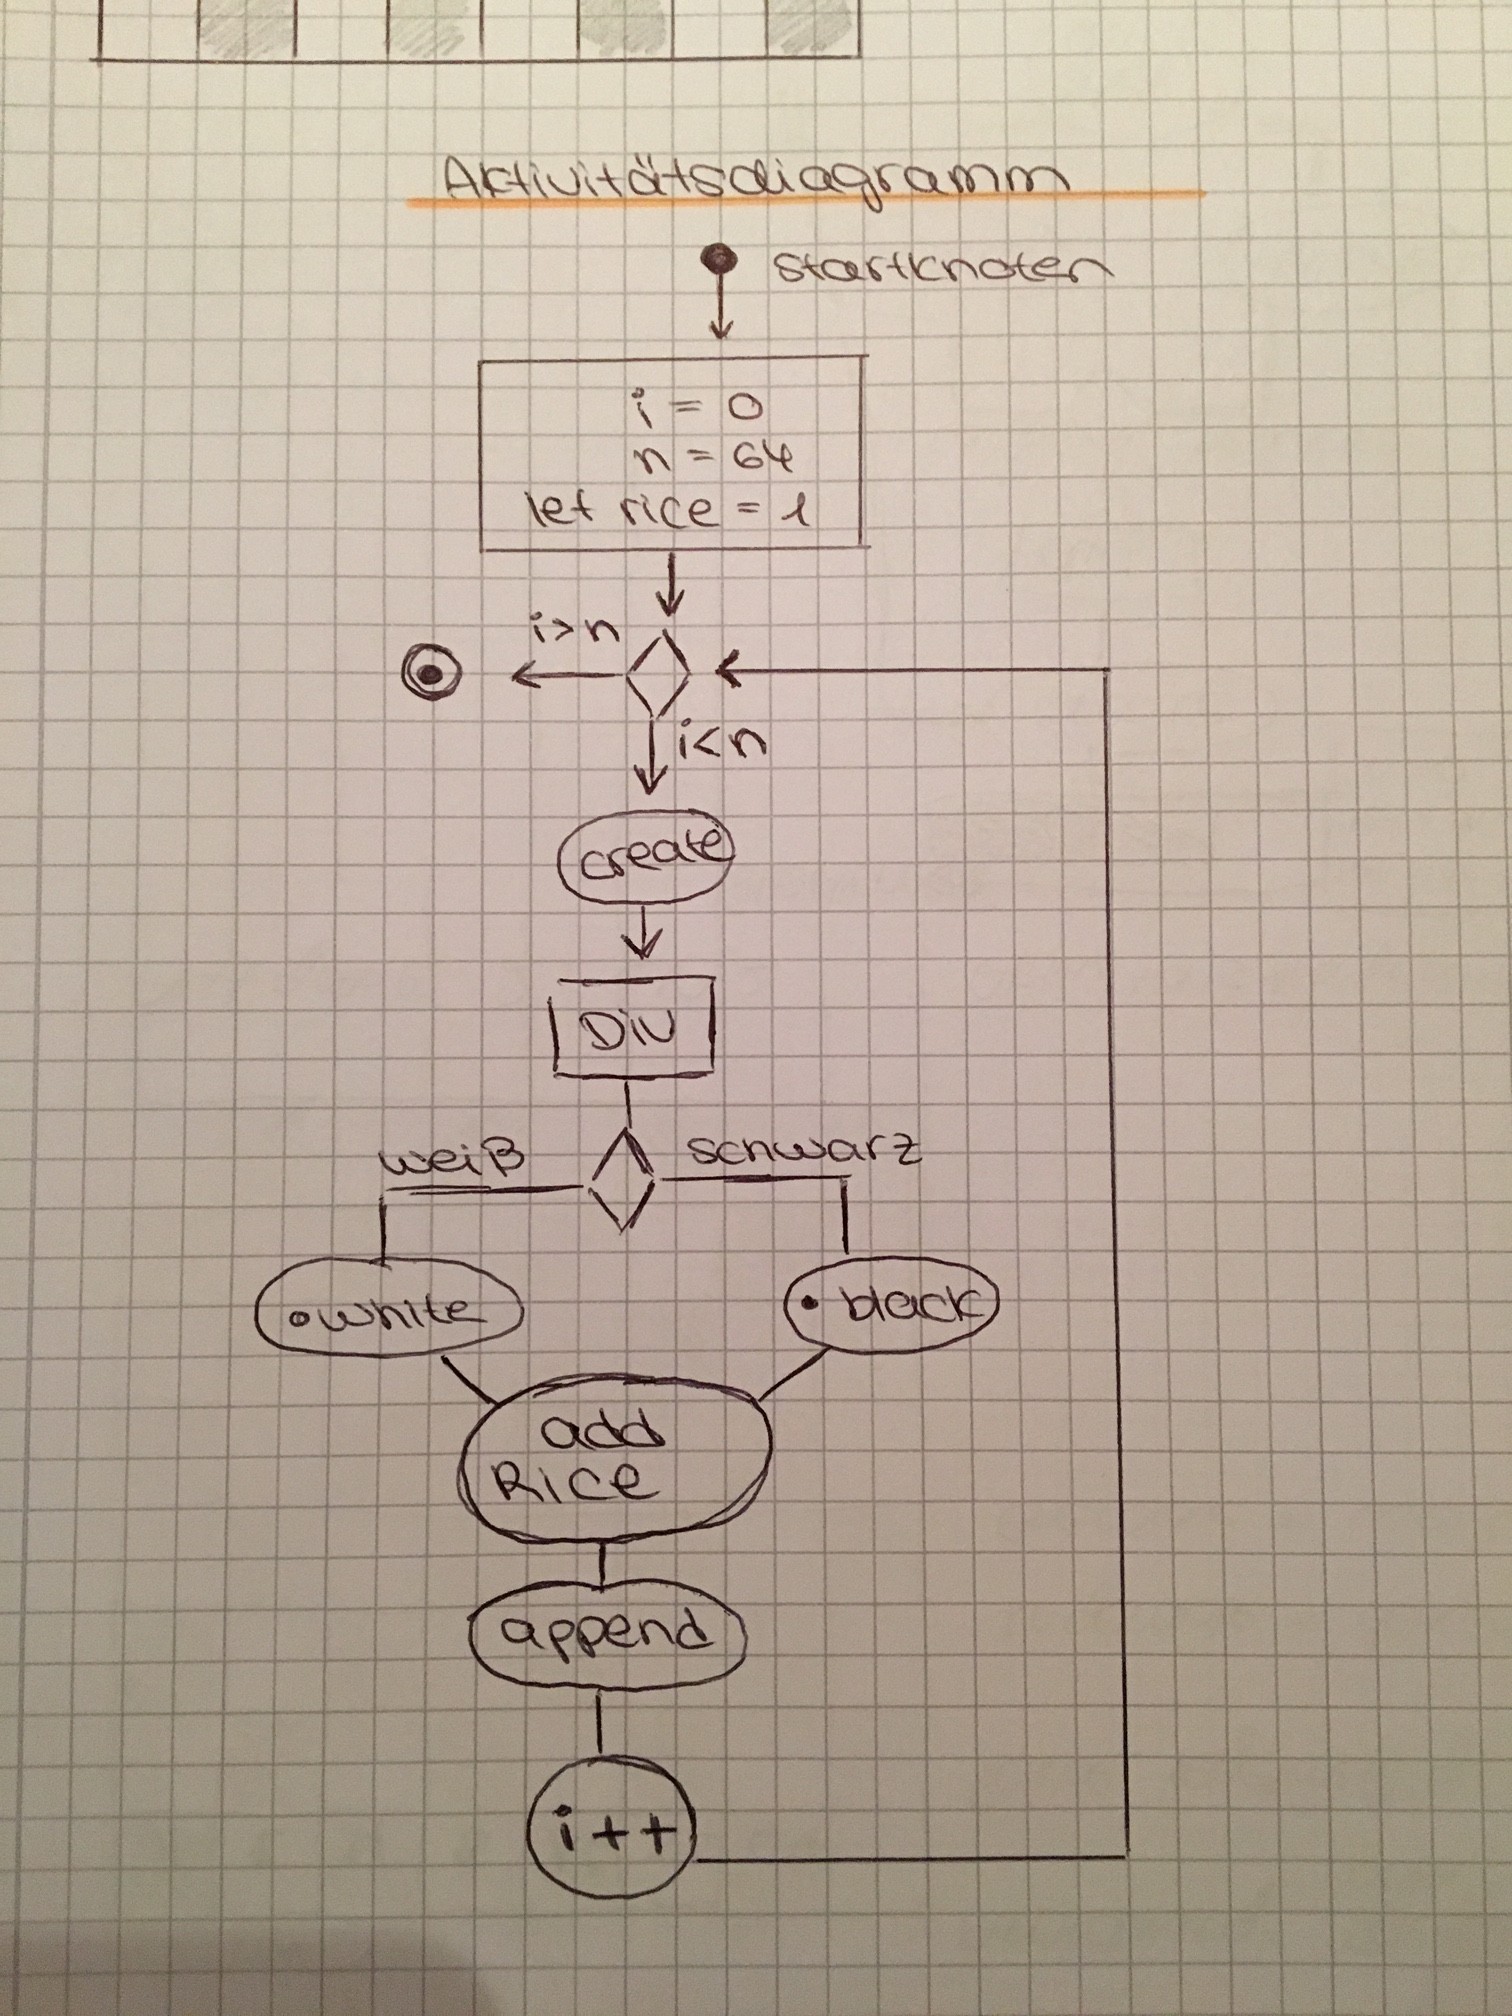 Aktivitätsdiagramm
Startknoten
i = 0
n = 64
let rice = 1
i>n
i<n
create
Div
weiß
schwarz
.white
.black
add
Rice
append
i++